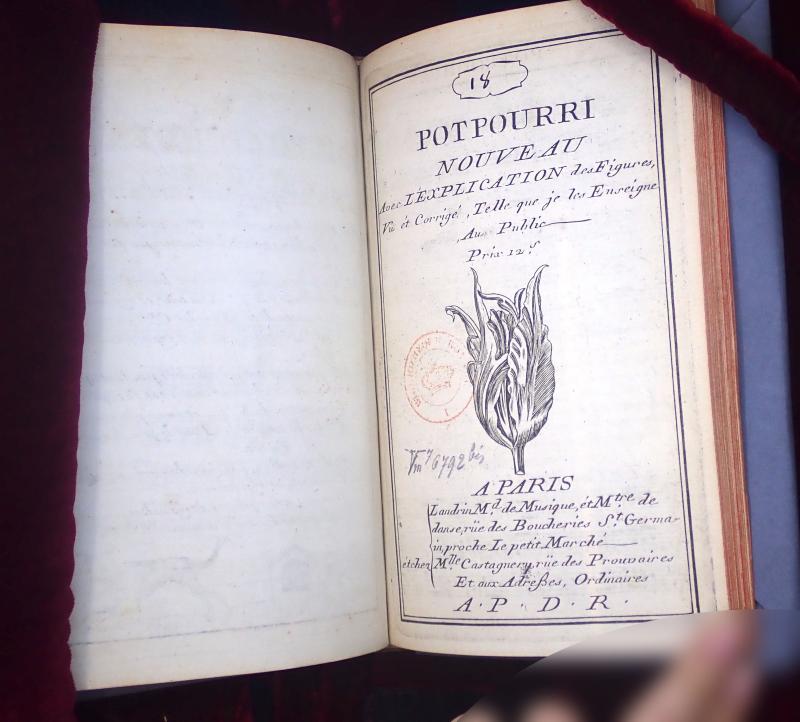 18
POTPOURRI
NOUVEAU
Avec L'EXPLICATION des Figures,
Vû ét Corrigé, Telle que je les Enseigne
Au Public
Prix 12.s
Vm7 6792 bis
A PARIS
Landrin Md. de Musique, ét Mtre. de
danse, rüe des Boucheries St. Germa-
in, proche Le petit Marché
ét chez Mlle. Castagnery, rüe des Prouvaires
Et aux Adreßes, Ordinaires
A. P. D. R.